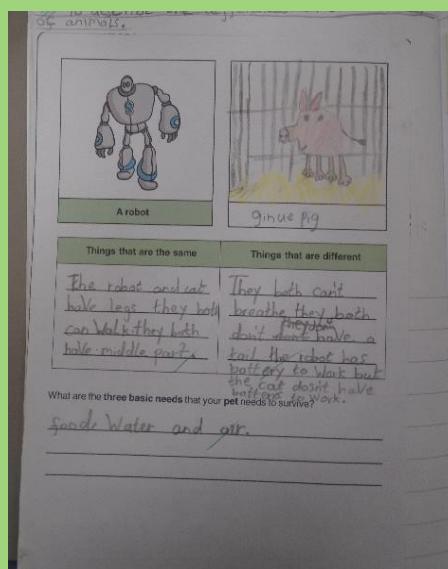 of animals.
A robot
ginue pig
Things that are the same
Things that are different
The robot and cat
have legs they both
can walk they both
have middle part
They both can't
breathe they both
don't have a
tail the robot has
battery to work but
the cat dosn't have
to work.
What are the three basic needs that your pet needs to survive?
food, Water and air.